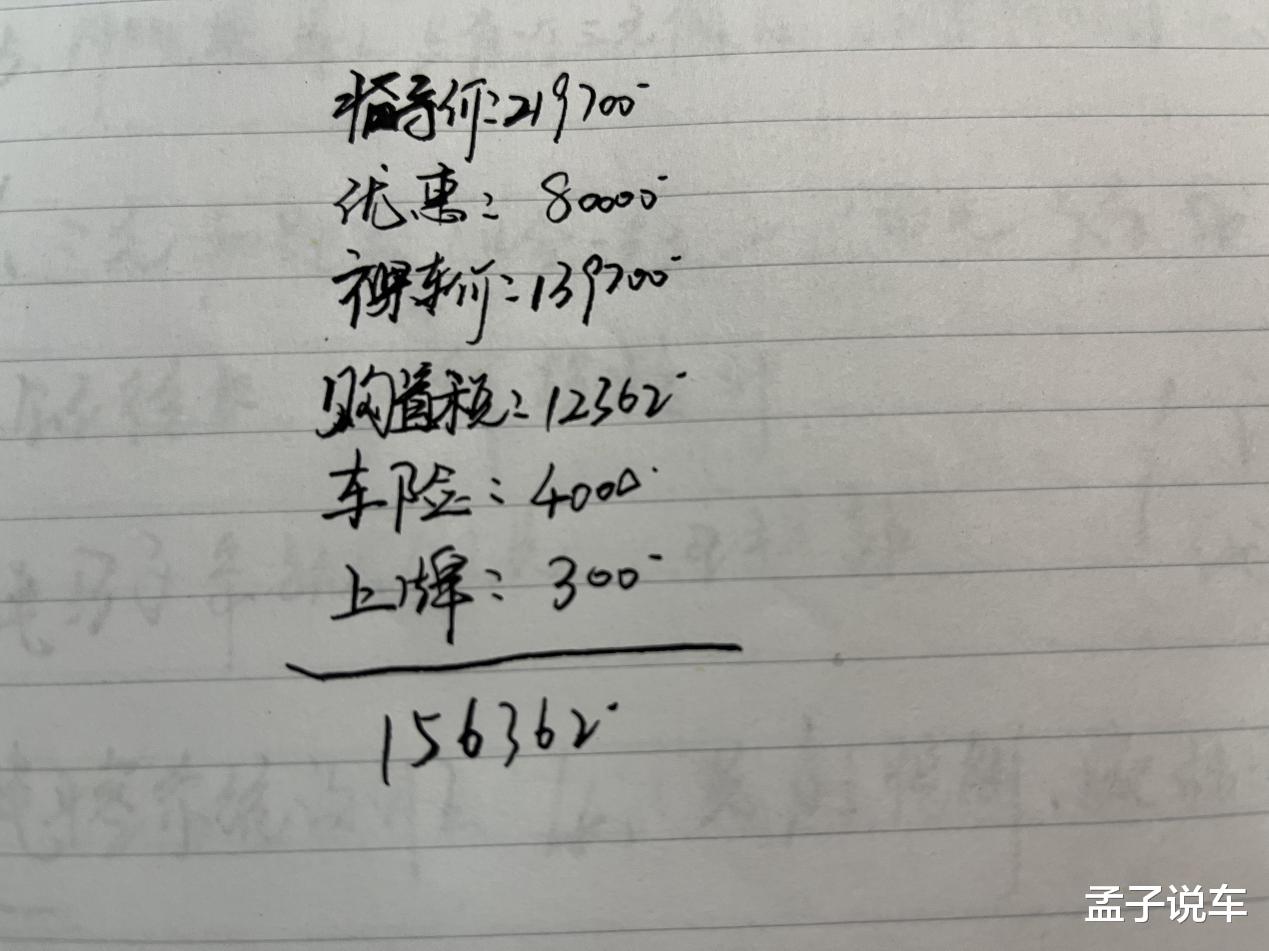 指导价：219700
优惠：80000
裸车价：139700
购置税：12362
车险：4000
上牌：300
156362
孟子说车